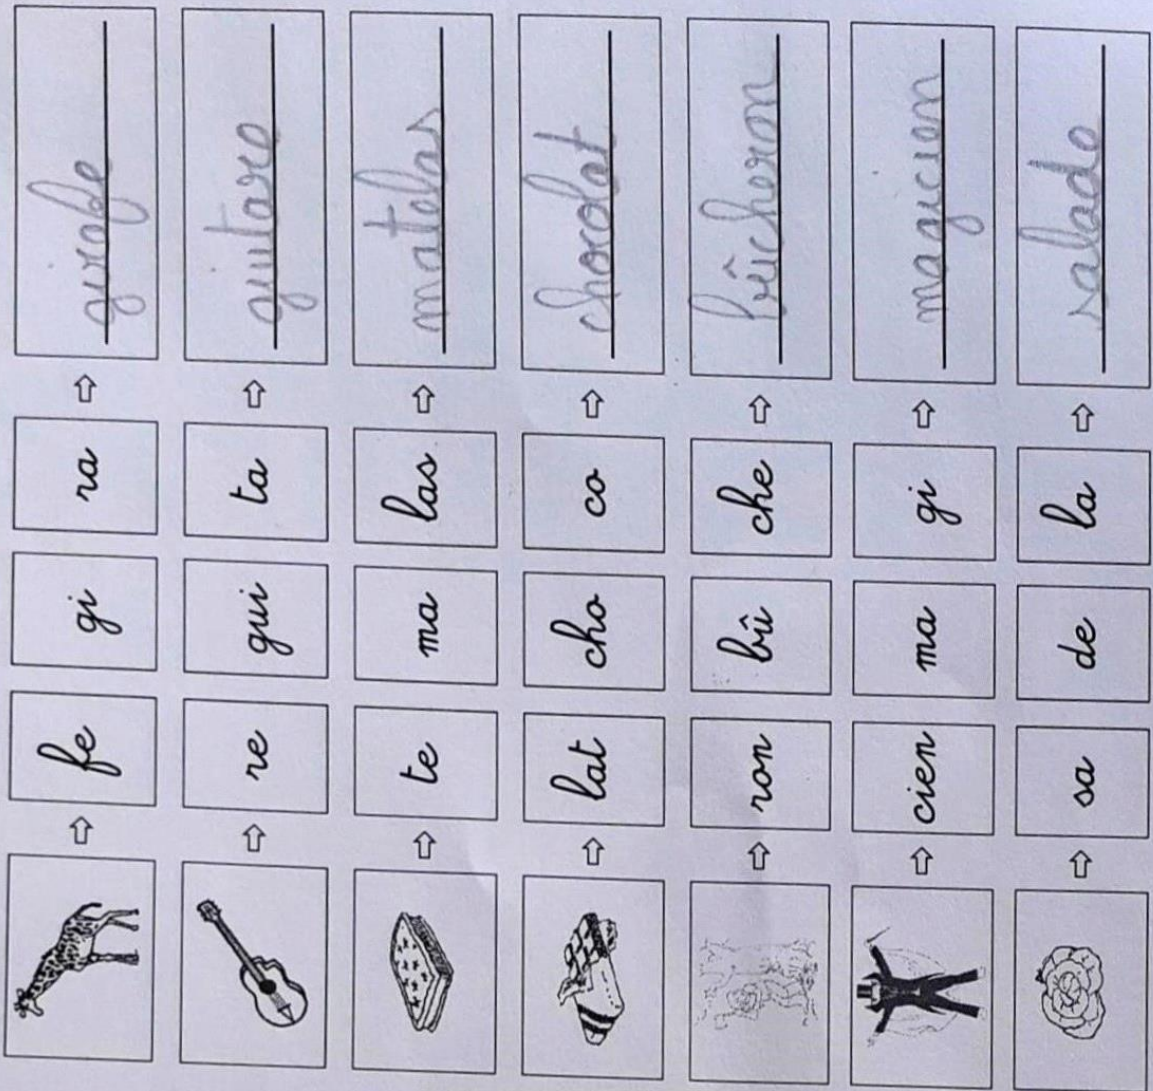 fe gi ra girafe
re gui ta guitare
te ma las matelas
lat cho co chocolat
ron bû che bûcheron
cien ma gi magicien
sa de la salade